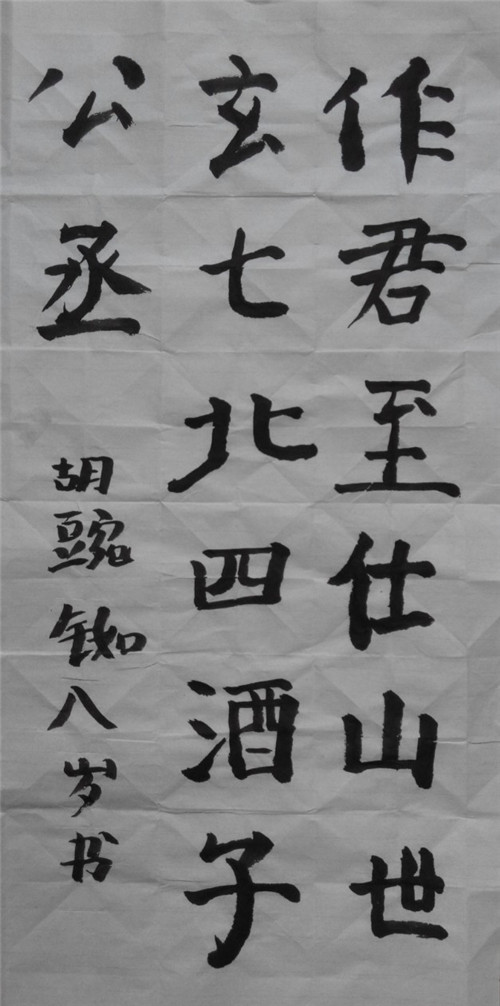 作君至仕山世
玄七北四酒子
公丞
胡豌铷八岁书